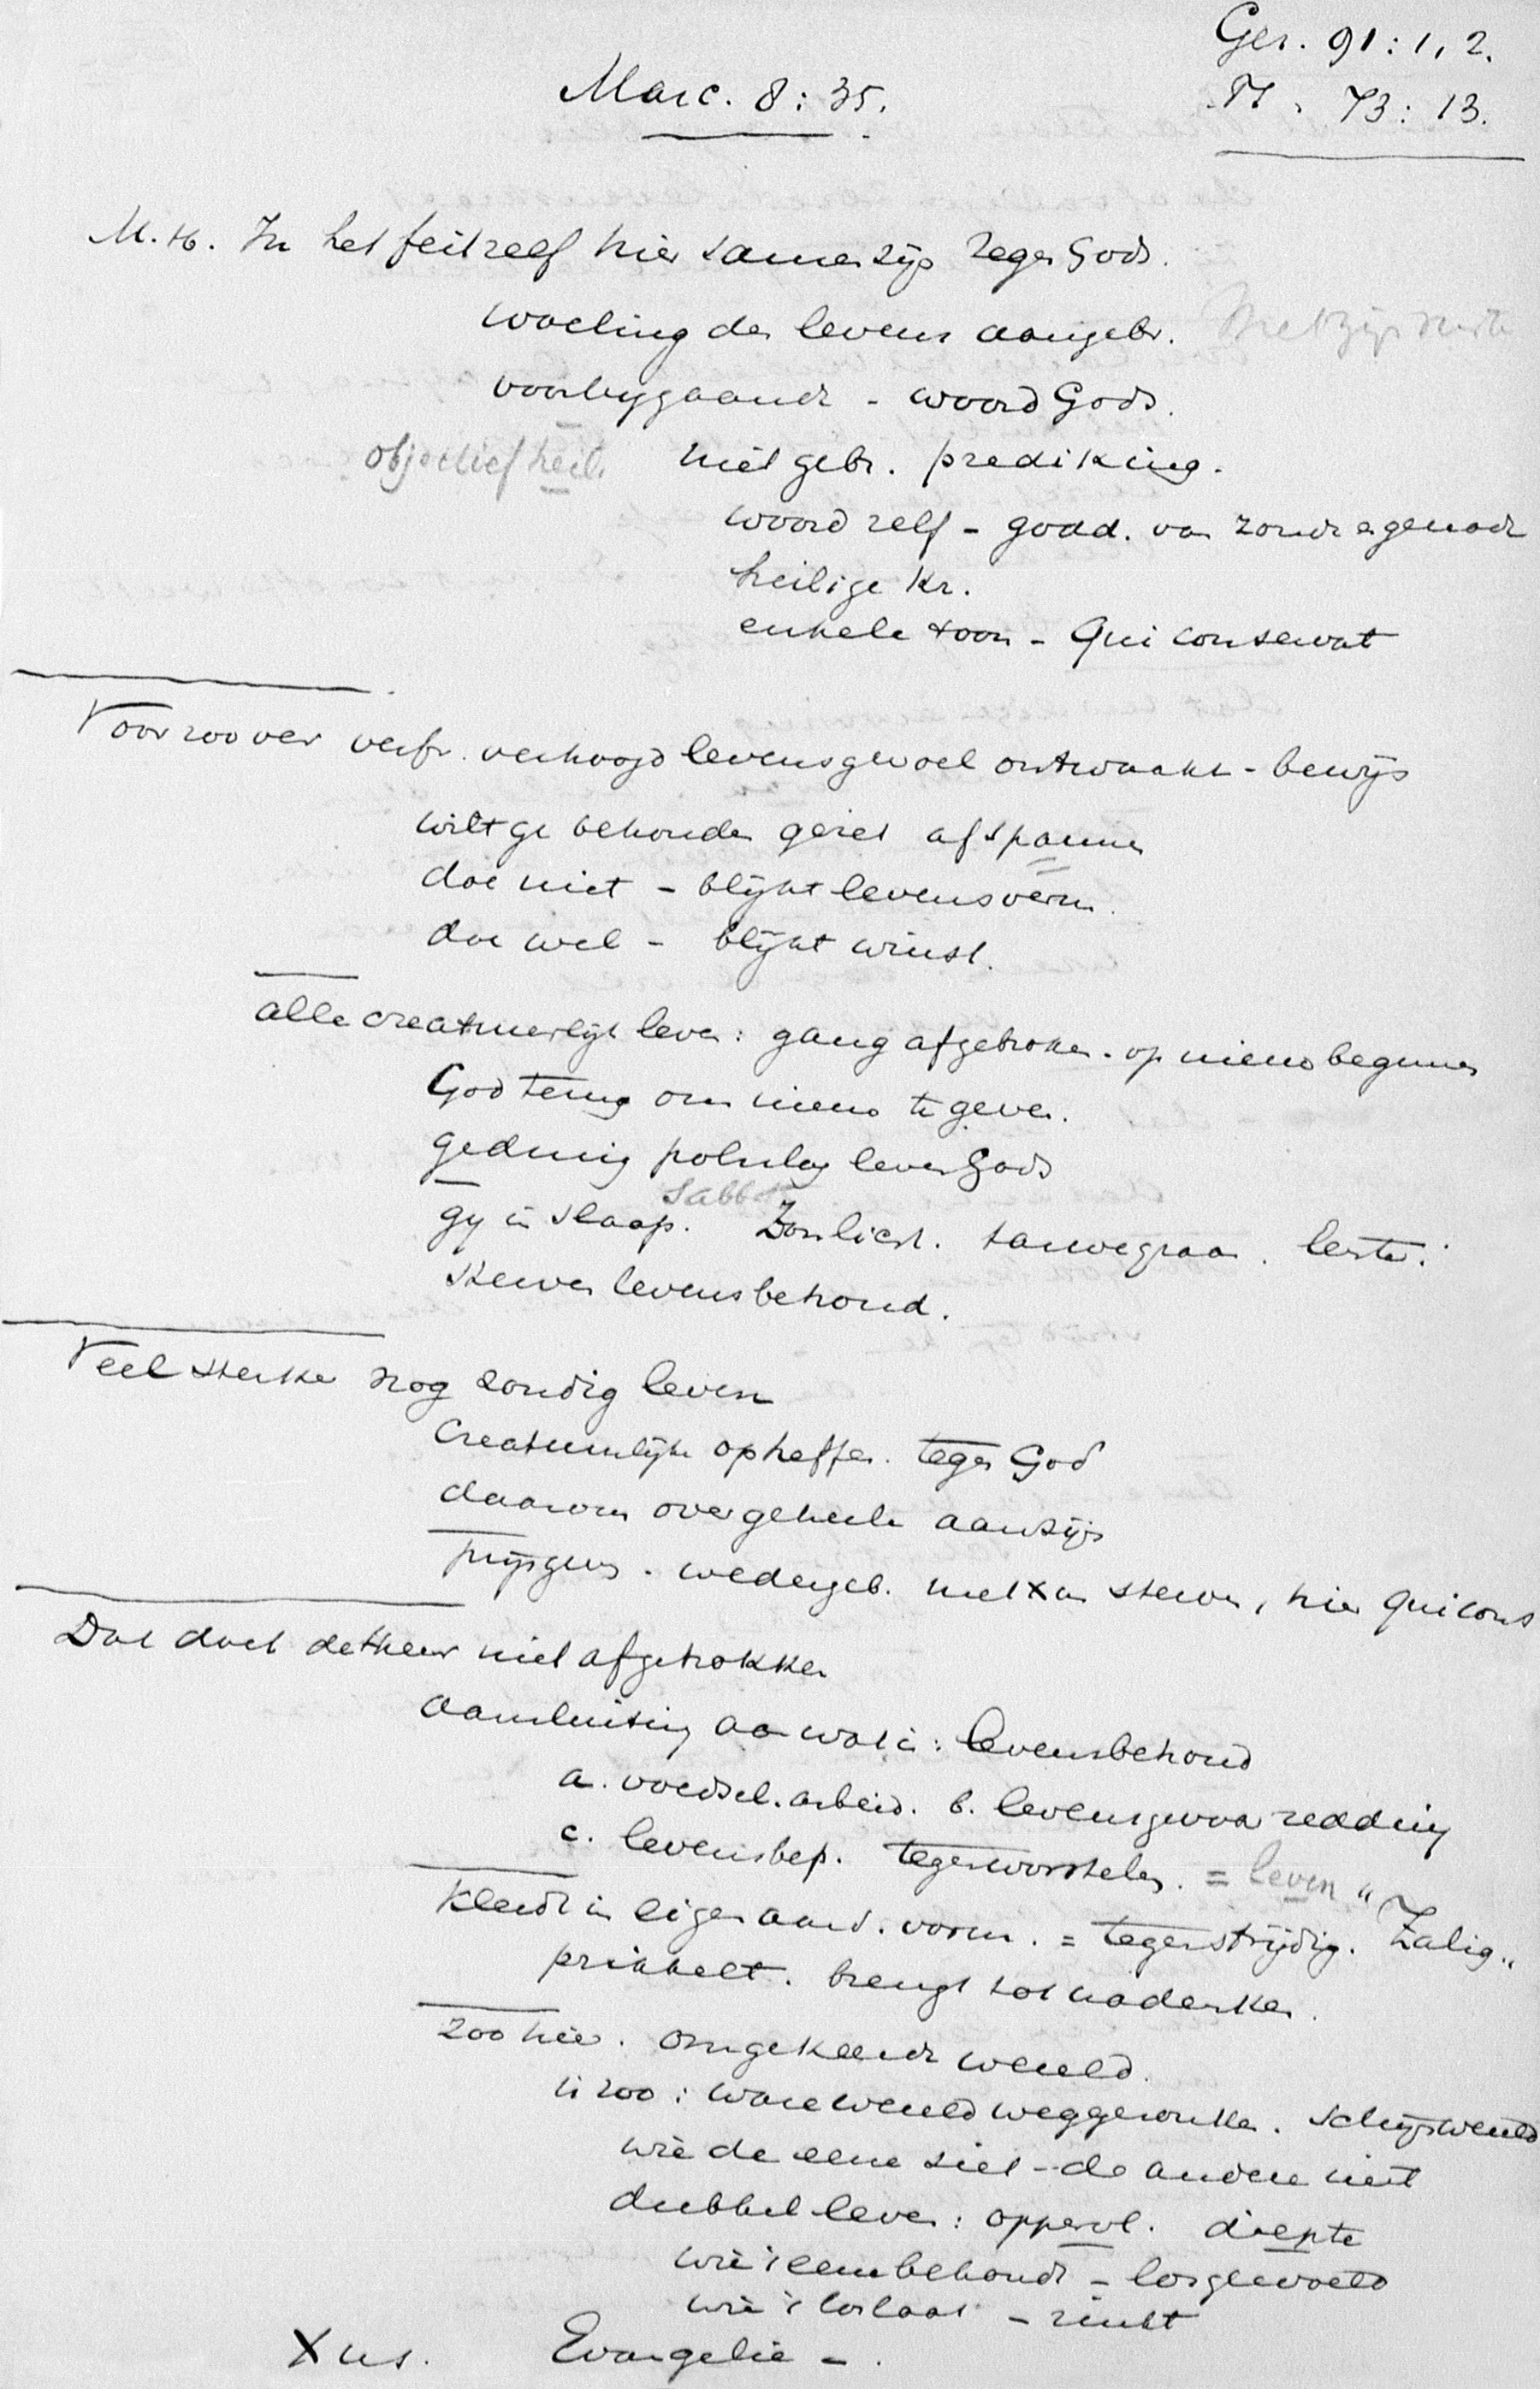 Gez. 91:1, 2.
Marc. 8:35.
Ps. 73:13.
M.H. In het feit zelf hier samenzijn zegen Gods.
woeling des levens aangebr.
voorbijgaande - woord Gods.
objectief heil. niet gebr. prediking.
woord zelf - godd. van zonde en genade
heilige kr.
enkele toon - Qui conservat
Voor zoover verfr. verhoogd levensgevoel ontwaakt - bewijs
wilt ge behouden geest afspannen
doe niet - blijkt levensverm.
doe wel - blijkt winst.
alle creatuurlijk leven: gang afgebroken. op nieuw beginnen
God terug om nieuw te geven.
gedurig polsslag leven Gods
Sabb
gij in slaap. Zonlicht. tarwegraan. lente.
sterven levensbehoud.
Veel sterker nog zondig leven
Creatuurlijke opheffen. tegen God
daarom over geheele aanzijn
prijsgeven. wedergeb. met X en sterven, hier qui cons
Dat doet de Heer niet afgetrokken
aansluiting aan wat is: levensbehoud
a. voedsel. arbeid. b. levensgevaar redding
c. levensbep. tegenworstelen. = leven
Kleedt in eigenaard. vorm. = tegenstrijdig. "Zalig"
prikkelt. brengt tot nadenken.
Zoo hier. omgekeerde wereld.
is zoo: ware wereld weggezonken. schijnwereld
wie de eene ziet - de andere niet
dubbel leven: oppervl. diepte
wie 't eene behoudt - losgewoeld
wie 't loslaat - zinkt
Xus. Evangelie -.